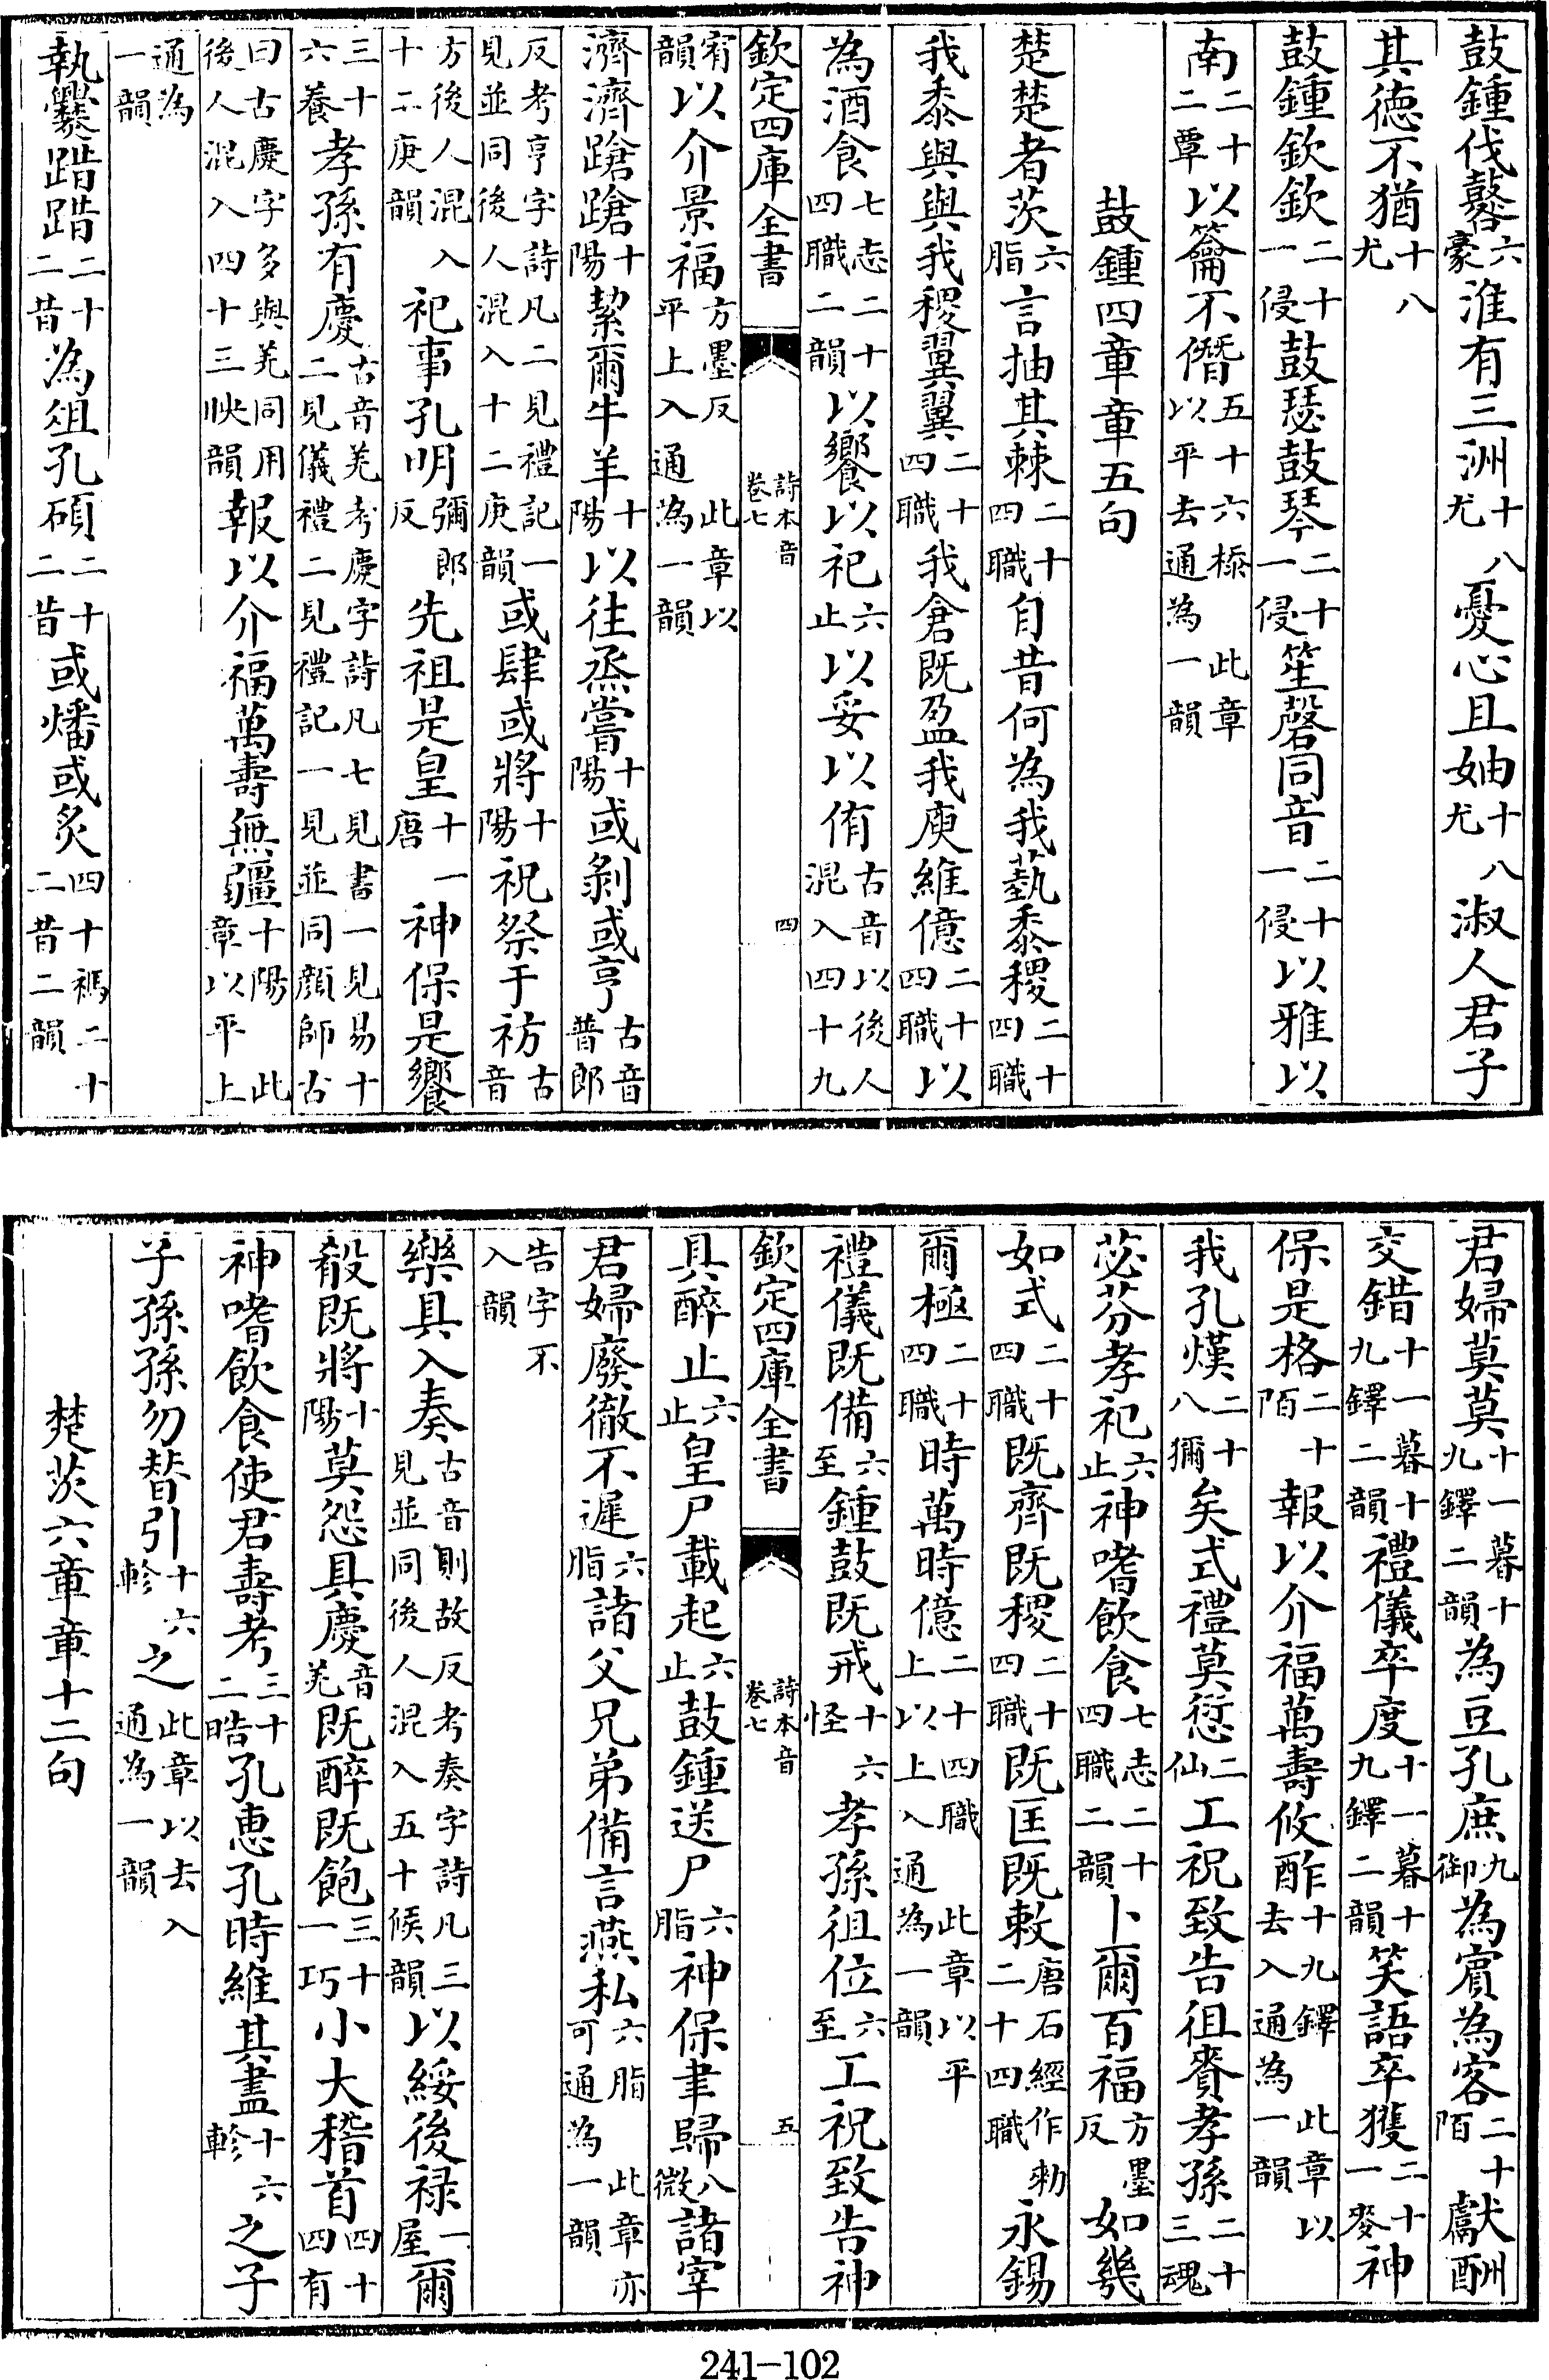 鼓鍾伐鼛六豪淮有三洲十八尤憂心且妯十八尤淑人君子
其德不猶十八尤
鼓鍾欽欽二十一侵鼓瑟鼓琴二十一侵笙磬同音二十一侵以雅以
南二十二覃以籥不僭五十六㮇以平去通為一韻此章
鼓鍾四章章五句
楚楚者茨六脂言抽其棘二十四職自昔何為我蓺黍稷二十四職
我黍與與我稷翼翼二十四職我倉既盈我庾維億二十四職以
為酒食七志二十四職二韻以饗以祀六止以妥以侑古音以後人混入四十九
宥韻以介景福方墨反此章以平上入通為一韻
濟濟蹌蹌十陽絜爾牛羊十陽以往烝嘗十陽或剝或亨古音普郎
反考亨字詩凡二見禮記一見並同後人混入十二庚韻或肆或將十陽祝祭于祊古音
方後人混入十二庚韻祀事孔明彌郎反先祖是皇十一唐神保是饗
三十六養孝孫有慶古音羌考慶字詩凡七見書一見易十二見儀禮二見禮記一見並同顔師古
曰古慶字多與羌同用後人混入四十三映韻報以介福萬壽無疆十陽此章以平上
通為一韻
執爨踖踖二十二昔為俎孔碩二十二昔或燔或炙四十禡二十二昔二韻
欽定四庫全書
詩本音
卷七
四
君婦莫莫十一暮十九鐸二韻為豆孔庶九御為賔為客二十陌獻酬
交錯十一暮十九鐸二韻禮儀卒度十一暮十九鐸二韻笑語卒獲二十一麥神
保是格二十陌報以介福萬壽攸酢十九鐸此章以去入通為一韻
我孔熯二十八獮矣式禮莫愆二仙工祝致告徂賚孝孫二十三魂
苾芬孝祀六止神嗜飲食七志二十四職二韻卜爾百福方墨反如幾
如式二十四職既齊既稷二十四職既匡既敕唐石經作勑二十四職永錫
爾極二十四職時萬時億二十四職此章以平上以上入通為一韻
禮儀既備六至鍾鼓既戒十六怪孝孫徂位六至工祝致告神
具醉止六止皇尸載起六止鼓鍾送尸六脂神保聿歸八微諸宰
君婦廢徹不遲六脂諸父兄弟備言燕私六脂此章亦可通為一韻
告字不入韻
樂具入奏古音則故反考奏字詩凡三見並同後人混入五十候韻以綏後禄一屋爾
殽既將十陽莫怨具慶音羌既醉既飽三十一巧小大稽首四十四有
神嗜飲食使君壽考三十二晧孔惠孔時維其盡十六軫之子
子孫孫勿替引十六軫之此章以去入通為一韻
楚茨六章章十二句
欽定四庫全書
詩本音
卷七
五
241-102